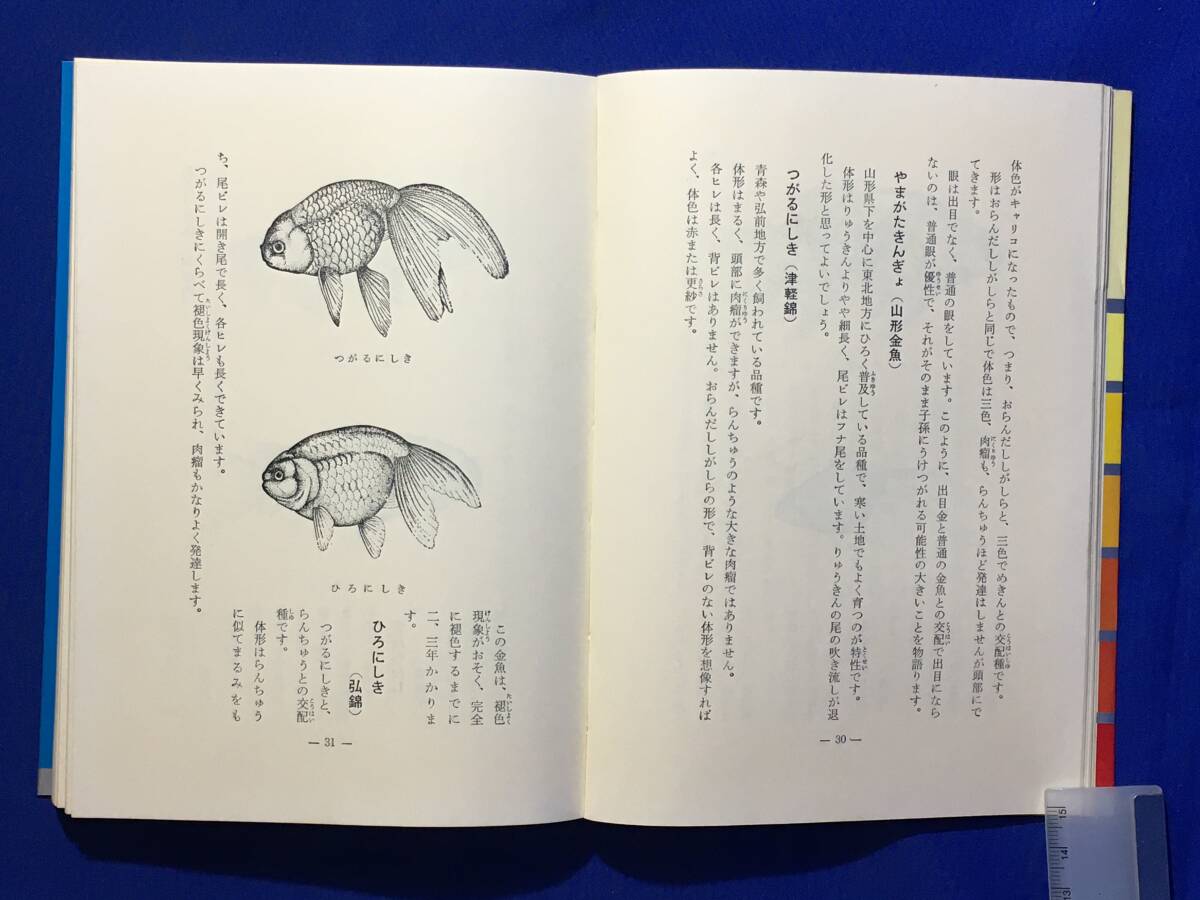 体色がキャリコになったもので、つまり、おらんだししがしらと、三色でめきんとの交配種です。
形はおらんだししがしらと同じで体色は三色、肉瘤も、らんちゅうほど発達はしませんが頭部にで
てきます。
眼は出目でなく、普通の眼をしています。このように、出目金と普通の金魚との交配で出目になら
ないのは、普通眼が優性で、それがそのまま子孫にうけつがれる可能性の大きいことを物語ります。
やまがたきんぎょ（山形金魚）
山形県下を中心に東北地方にひろく普及している品種で、寒い土地でもよく育つのが特性です。
体形はりゅうきんよりやや細長く、尾ビレはフナ尾をしています。りゅうきんの尾の吹き流しが退
化した形と思ってよいでしょう。
つがるにしき（津軽錦）
青森や弘前地方で多く飼われている品種です。
体形はまるく、頭部に肉瘤ができますが、らんちゅうのような大きな肉瘤ではありません。
各ヒレは長く、背ビレはありません。おらんだししがしらの形で、背ビレのない体形を想像すれば
よく、体色は赤または更紗です。
— 30 —
つがるにしき
ひろにしき
この金魚は、褪色
現象がおそく、完全
に褪色するまでに
二、三年かかりま
す。
ひろにしき
（弘錦）
つがるにしきと、
らんちゅうとの交配
種です。
体形はらんちゅう
に似てまるみをも
ち、尾ビレは開き尾で長く、各ヒレも長くできています。
つがるにしきにくらべて褪色現象は早くみられ、肉瘤もかなりよく発達します。
— 31 —
15
14
13